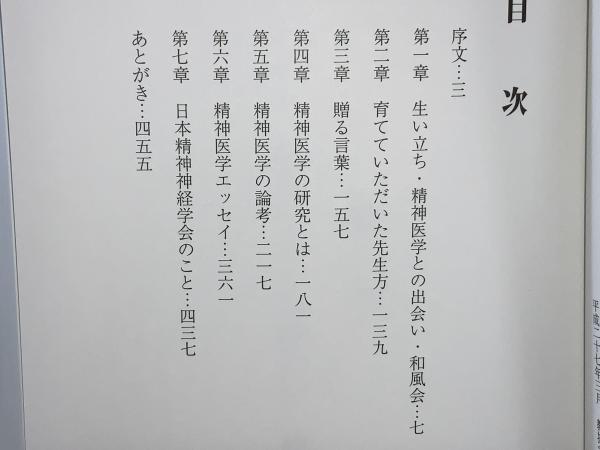 目次
序文…三
第一章　生い立ち・精神医学との出会い・和風会…七
第二章　育てていただいた先生方…一三九
第三章　贈る言葉…一五七
第四章　精神医学の研究とは…一八一
第五章　精神医学の論考…二一七
第六章　精神医学エッセイ…三六一
第七章　日本精神神経学会のこと…四三七
あとがき…四五五